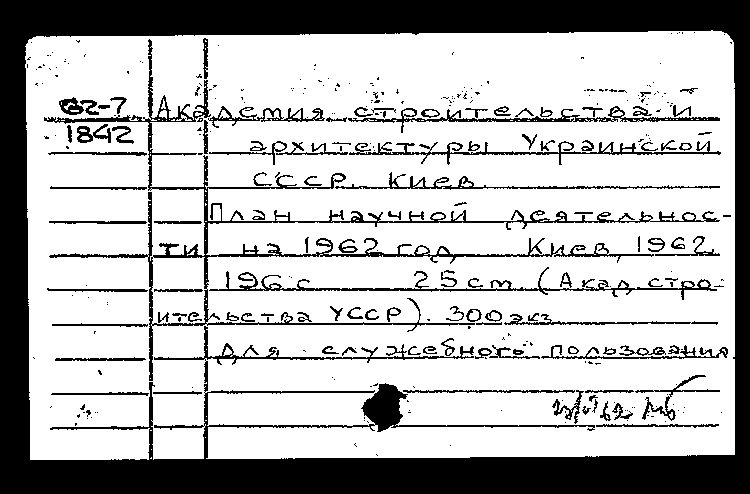 62-7 Академия строительства и
1842
архитектуры Украинской
СССР. Киев.
План научной деятельнос-
ти на 1962 год Киев, 1962.
196 с 25 cm. (Акад. стро-
ительства УССР). 300 экз.
Для служебного пользования
62